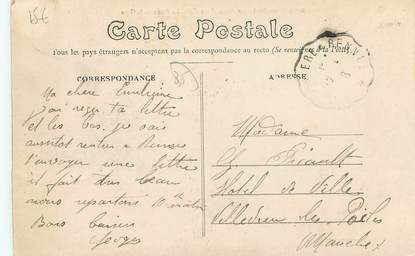 15€
Carte Postale
Tous les pays étrangers n'acceptent pas la correspondance au recto (Se renseigner à la Poste)
CORRESPONDANCE
ADRESSE
35
Ma chère
j'ai reçu ta lettre
et les bas. je vais
aussitôt rentrer à Rennes
t'envoyer une lettre
il fait très beau
nous repartons 10 h matin
Bons baisers
Georges
Madame
Picault
Hotel de Ville
Villedieu les Poëles
Manche